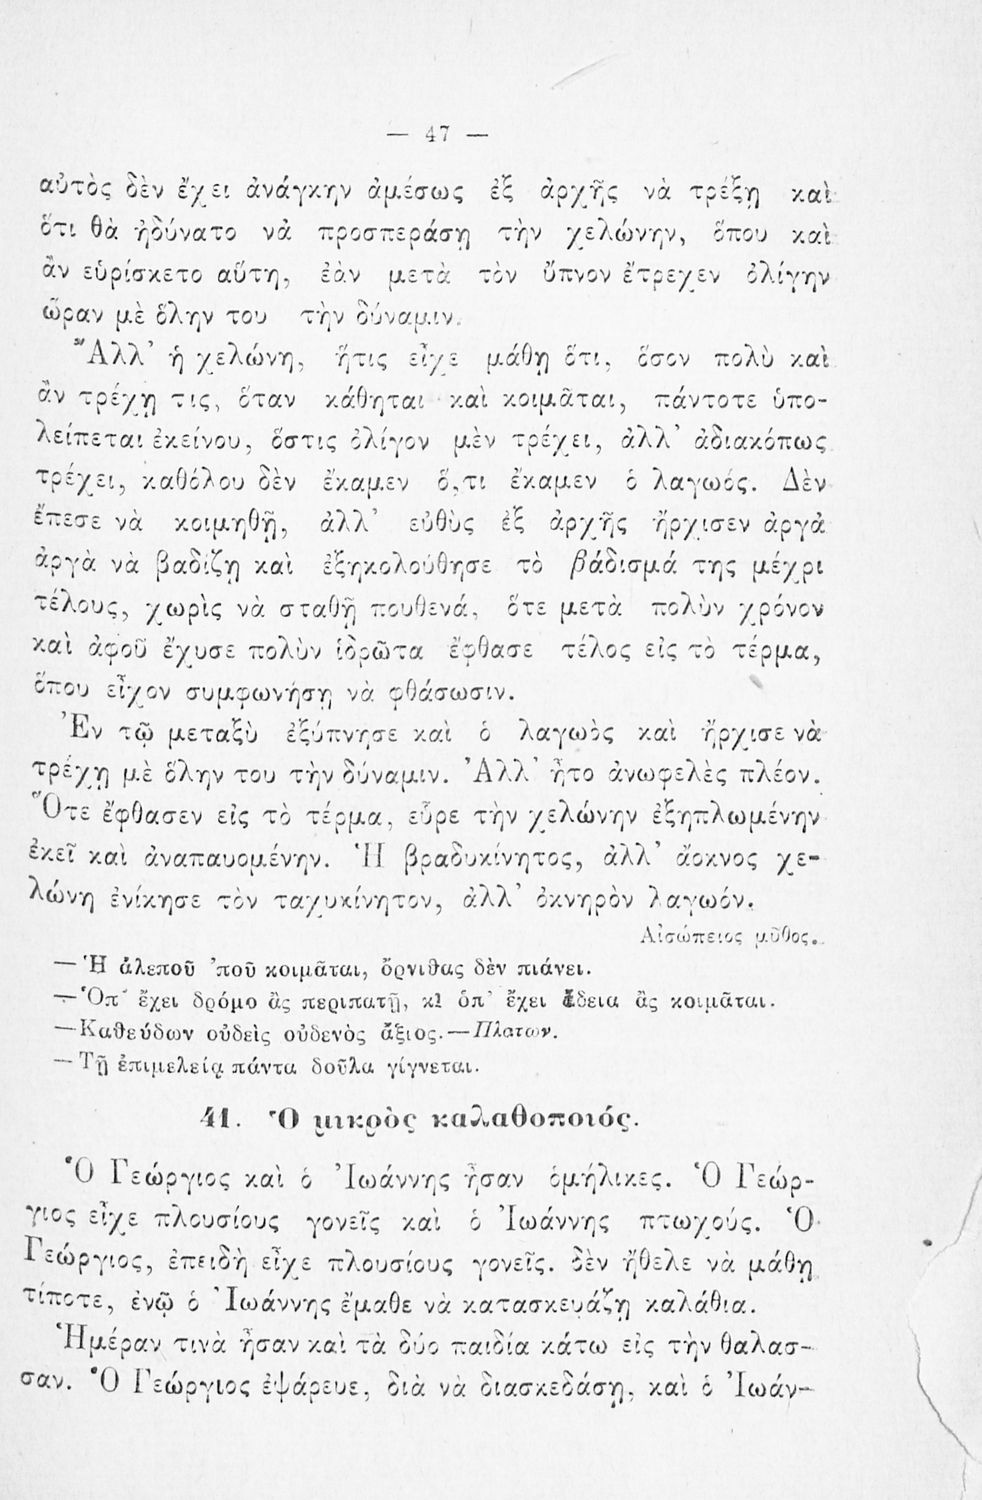 — 47 —
αὐτὸς δὲν ἔχει ἀνάγκην ἀμέσως ἐξ ἀρχῆς νὰ τρέξῃ καὶ
ὅτι θὰ ἠδύνατο νὰ προσπεράσῃ τὴν χελώνην, ὅπου καὶ
ἂν εὑρίσκετο αὕτη, ἐὰν μετὰ τὸν ὕπνον ἔτρεχεν ὀλίγην
ὥραν μὲ ὅλην του τὴν δύναμιν.
Ἀλλ’ ἡ χελώνη, ἥτις εἶχε μάθῃ ὅτι, ὅσον πολὺ καὶ
ἂν τρέχῃ τις, ὅταν κάθηται καὶ κοιμᾶται, πάντοτε ὑπο-
λείπεται ἐκείνου, ὅστις ὀλίγον μὲν τρέχει, ἀλλ’ ἀδιακόπως
τρέχει, καθόλου δὲν ἔκαμεν ὅ,τι ἔκαμεν ὁ λαγωός. Δὲν
ἔπεσε νὰ κοιμηθῇ, ἀλλ’ εὐθὺς ἐξ ἀρχῆς ἤρχισεν ἀργὰ
ἀργὰ νὰ βαδίζῃ καὶ ἐξηκολούθησε τὸ βάδισμά της μέχρι
τέλους, χωρὶς νὰ σταθῇ πουθενά, ὅτε μετὰ πολὺν χρόνον
καὶ ἀφοῦ ἔχυσε πολὺν ἱδρῶτα ἔφθασε τέλος εἰς τὸ τέρμα,
ὅπου εἶχον συμφωνήσῃ νὰ φθάσωσιν.
Ἐν τῷ μεταξὺ ἐξύπνησε καὶ ὁ λαγωὸς καὶ ἤρχισε νὰ
τρέχῃ μὲ ὅλην του τὴν δύναμιν. Ἀλλ’ ἦτο ἀνωφελὲς πλέον.
Ὅτε ἔφθασεν εἰς τὸ τέρμα, εὗρε τὴν χελώνην ἐξηπλωμένην
ἐκεῖ καὶ ἀναπαυομένην. Ἡ βραδυκίνητος, ἀλλ’ ἄοκνος χε-
λώνη ἐνίκησε τὸν ταχυκίνητον, ἀλλ’ ὀκνηρὸν λαγωόν.
Αἰσώπειος μῦθος.
— Ἡ ἀλεποῦ ’ποῦ κοιμᾶται, ὄρνιθας δὲν πιάνει.
— Ὁπ’ ἔχει δρόμο ἂς περιπατῇ, κι ὁπ’ ἔχει ἄδεια ἂς κοιμᾶται.
— Καθεύδων οὐδεὶς οὐδενὸς ἄξιος. — Πλατων.
— Τῇ ἐπιμελείᾳ πάντα δοῦλα γίγνεται.
41. Ὁ μικρὸς καλαθοποιός.
Ὁ Γεώργιος καὶ ὁ Ἰωάννης ἦσαν ὁμήλικες. Ὁ Γεώρ-
γιος εἶχε πλουσίους γονεῖς καὶ ὁ Ἰωάννης πτωχούς. Ὁ
Γεώργιος, ἐπειδὴ εἶχε πλουσίους γονεῖς. δὲν ἤθελε νὰ μάθῃ
τίποτε, ἐνῷ ὁ Ἰωάννης ἔμαθε νὰ κατασκευάζῃ καλάθια.
Ἡμέραν τινὰ ἦσαν καὶ τὰ δύο παιδία κάτω εἰς τὴν θαλασ-
σαν. Ὁ Γεώργιος ἐψάρευε, διὰ νὰ διασκεδάσῃ, καὶ ὁ Ἰωάν-